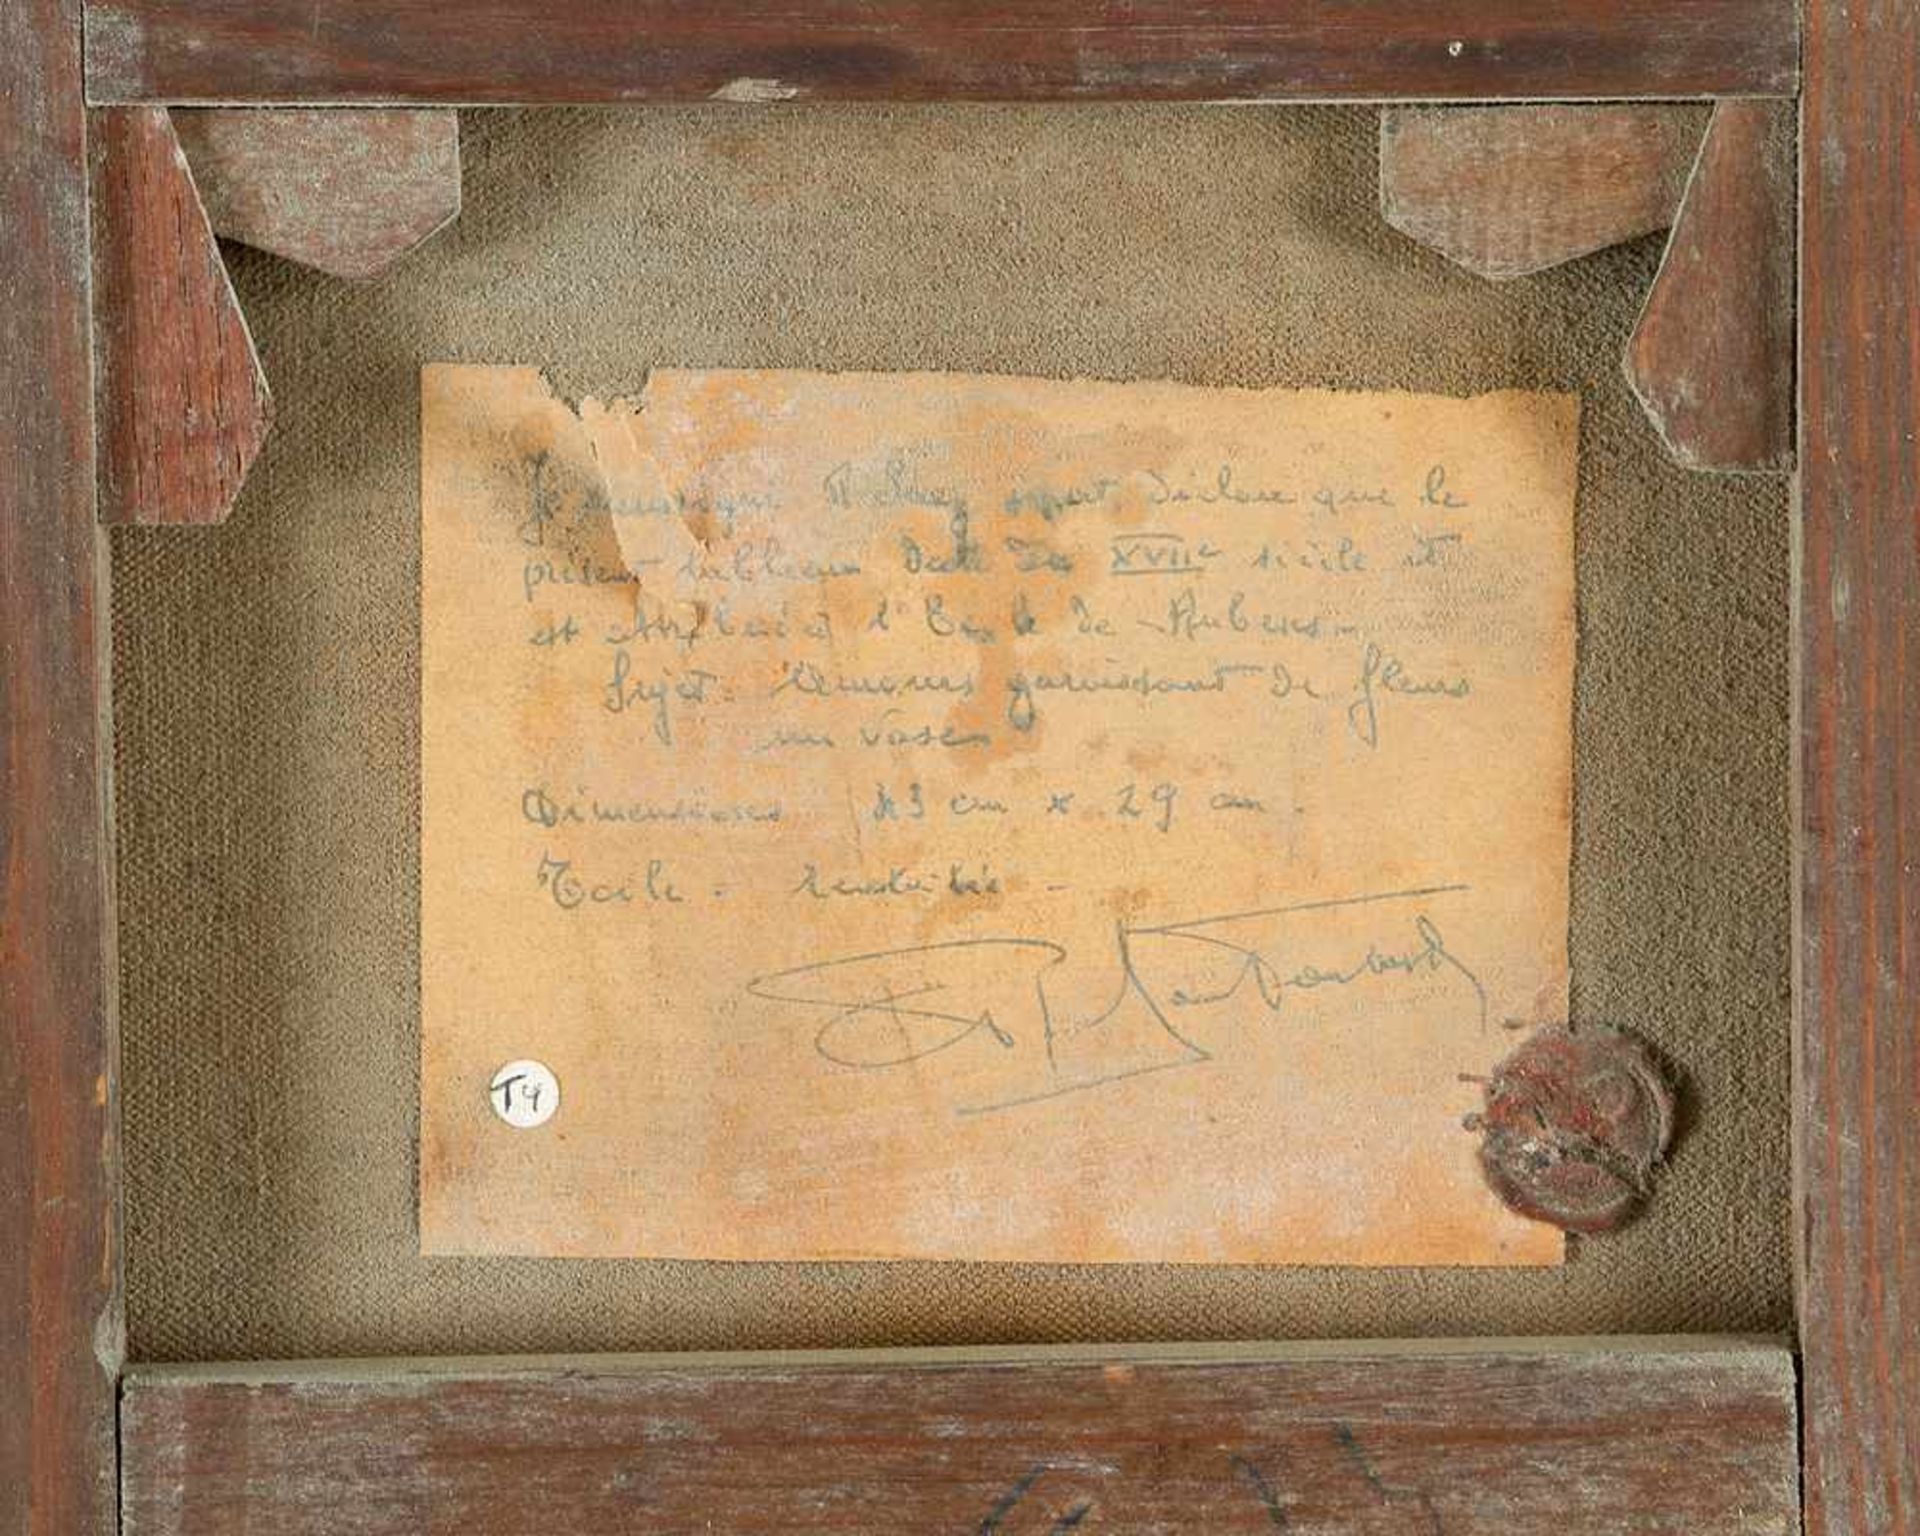 Je soussigné expert déclare que le
présent tableau date du XVIIe siècle et
est attribué à l'École de Rubens -
Sujet : Amours garnissant de fleurs
un vase
Dimensions 43 cm x 29 cm .
Toile .
T4